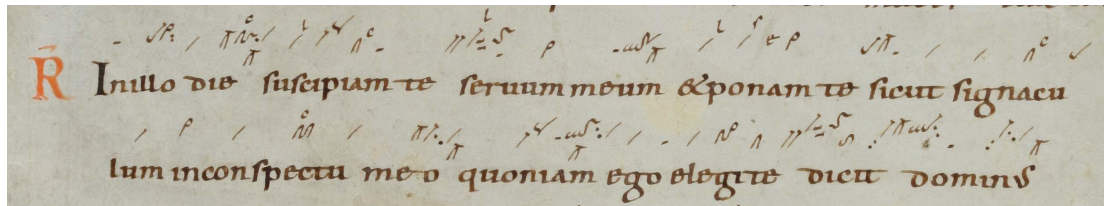 R̄ Inillo die suscipiam te seruum meum &ponam te sicut signacu
lum inconspectu meo quoniam ego elegi te dicit dominus